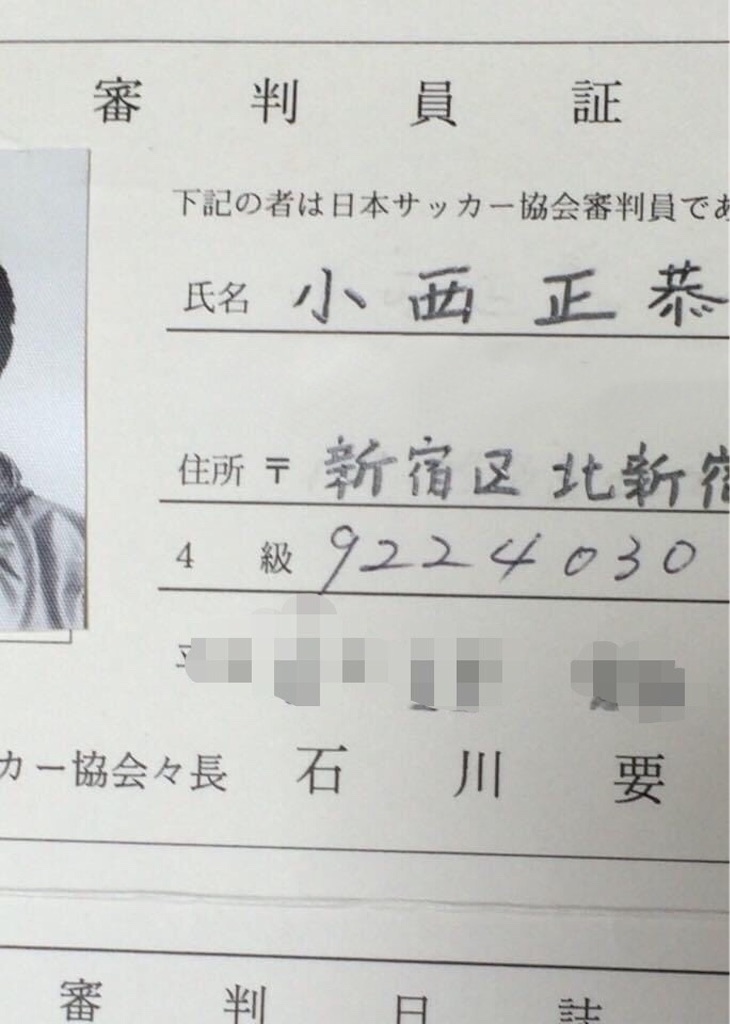 審判員証
下記の者は日本サッカー協会審判員であ
氏名 小西正恭
住所 〒 新宿区北新宿
4級 9224030
カー協会々長 石川要
審判日誌